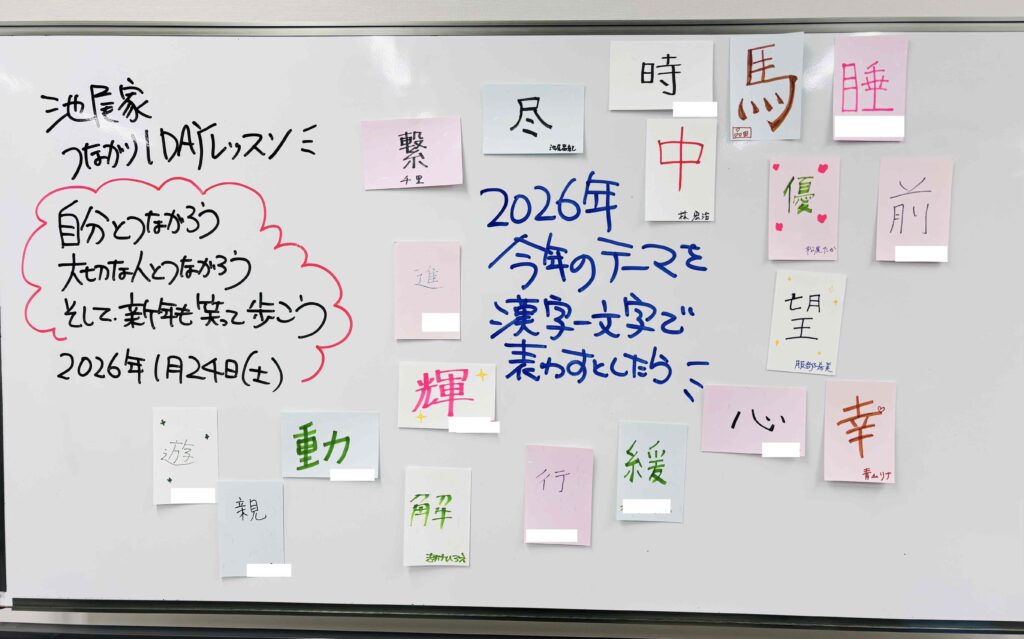 池尾家
つながり1DAYレッスン
自分とつながろう
大切な人とつながろう
そして、新年も笑って歩こう
2026年1月24日(土)
2026年
今年のテーマを
漢字一文字で
表わすとしたら
繋
千里
尽
時
馬
睡
中
林 宏治
優
前
進
望
輝
心
幸
青山リナ
遊
動
親
解
行
緩